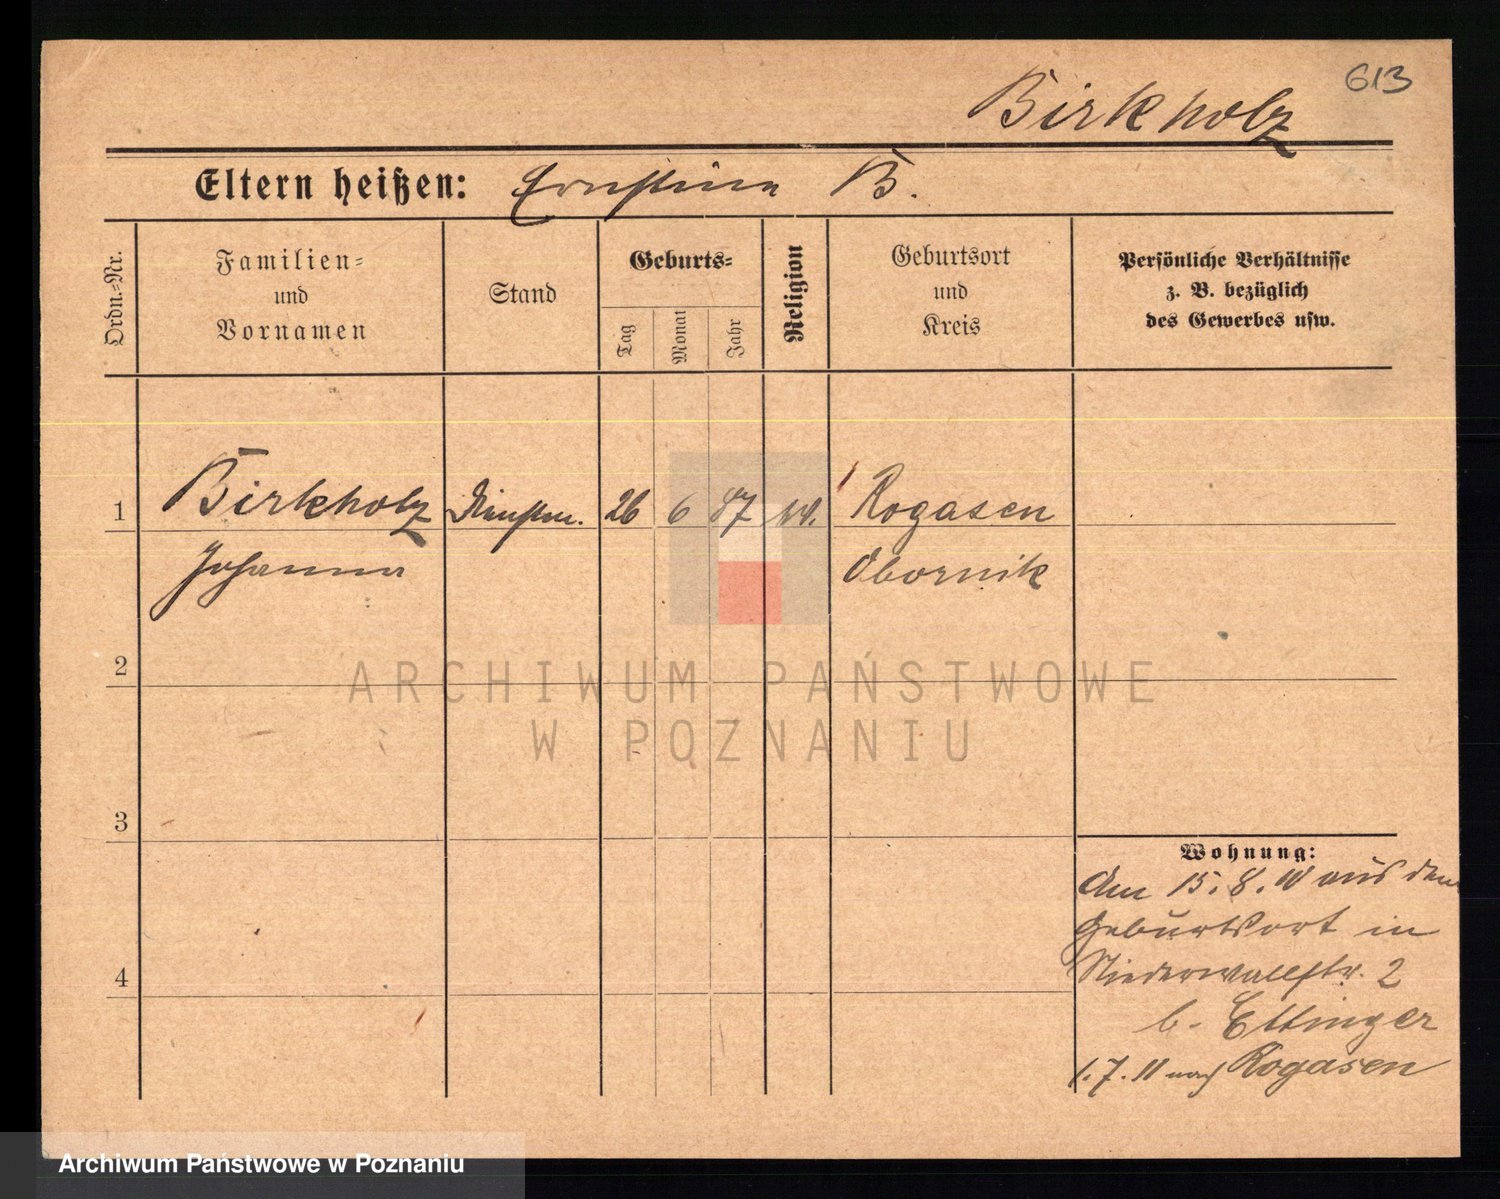 613
Birkholz
Eltern heißen: Ernstine B.
Ordn.-Nr.
Familien-
und
Vornamen
Stand
Geburts-
Tag
Monat
Jahr
Religion
Geburtsort
und
Kreis
Persönliche Verhältnisse
z. B. bezüglich
des Gewerbes usw.
1 Birkholz 26 6 87 Rogasen
Johanna Obornik
2
3
4
Wohnung:
Am 15. 8. 10 aus dem
Geburtsort in
Niederwallstr. 2
b. Ettinger
1. 7. 11 nach Rogasen
ARCHIWUM PAŃSTWOWE
W POZNANIU
Archiwum Państwowe w Poznaniu